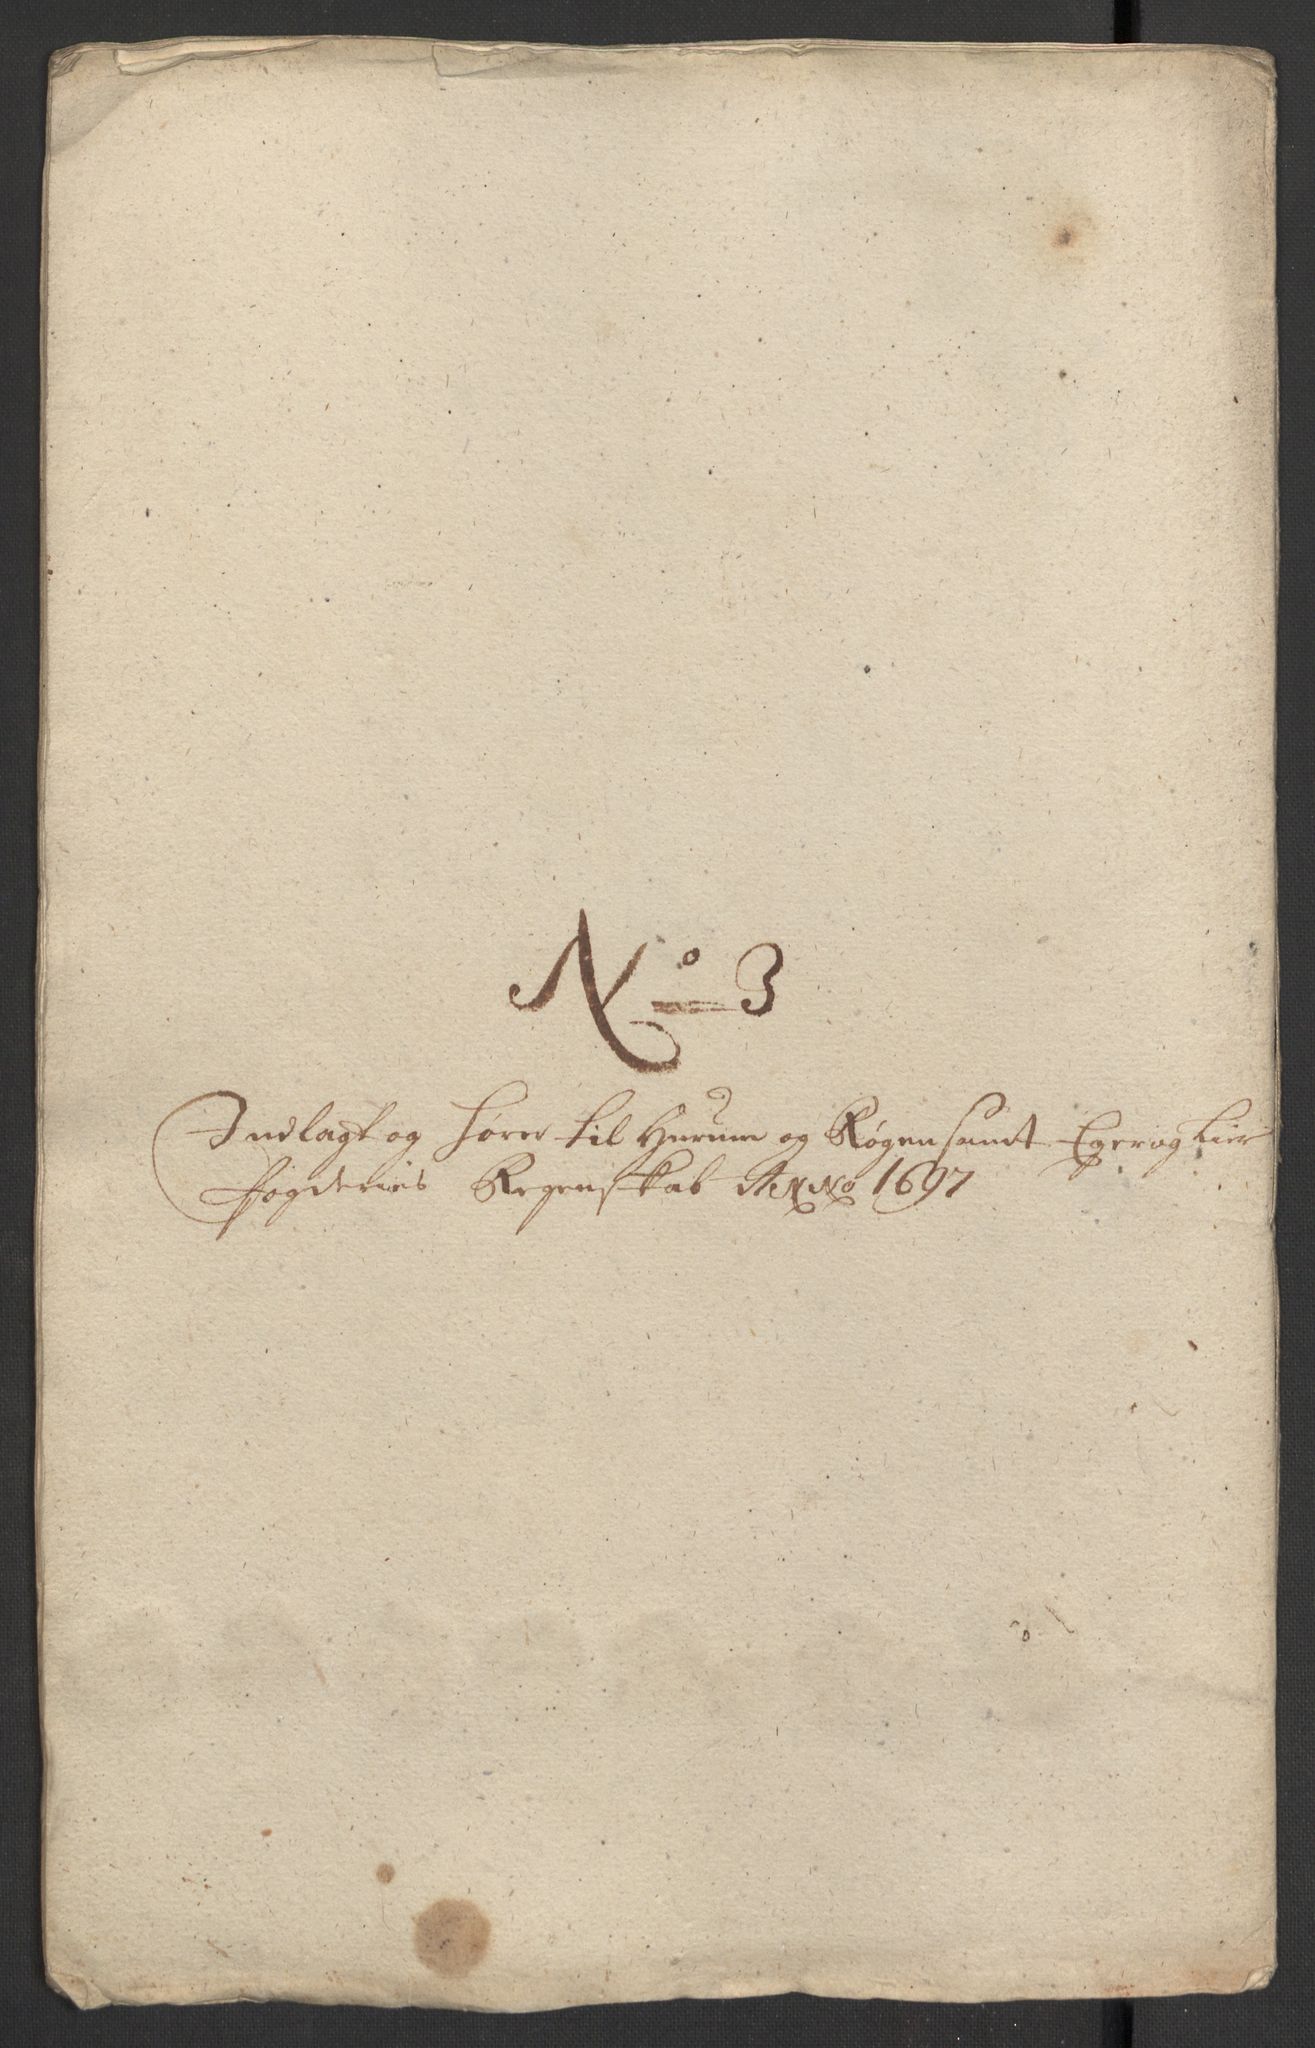 No 3
Indlagt og hører til Hurum og Røgen samt Eger og Lier
fogderies Regenskab Anno 1697